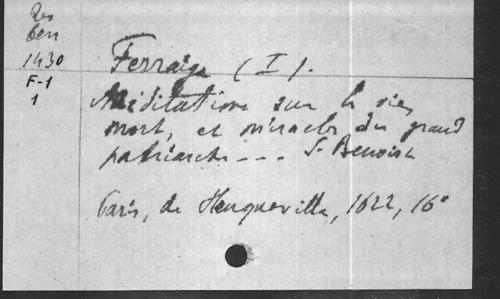 Res
Cerr
1430
F-1
1
Ferraige (I).
Méditations sur la vie,
mort, et miracles du grand
patriarche --- St Benoist
Paris, de Heuqueville, 1622, 16°